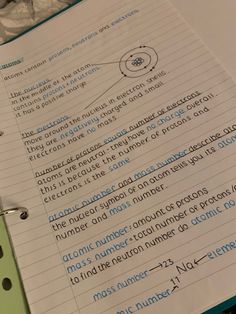 atoms
atoms contain protons, neutrons and electrons.
the nucleus
in the middle of the atom.
contains protons + neutrons
it has a positive charge.
the electrons
move around the nucleus in electron shells
they are negatively charged and small.
electrons have no mass.
number of protons equals number of electrons
atoms are neutral - they have no charge overall.
this is because the number of protons and
electrons is the same
atomic number and mass number describe
the nuclear symbol of an atom tells you its
number and mass number.
atomic number: amount of protons
mass number = total number of protons
to find the neutron number do atomic no
mass number → 23
Na ←
atomic number 11